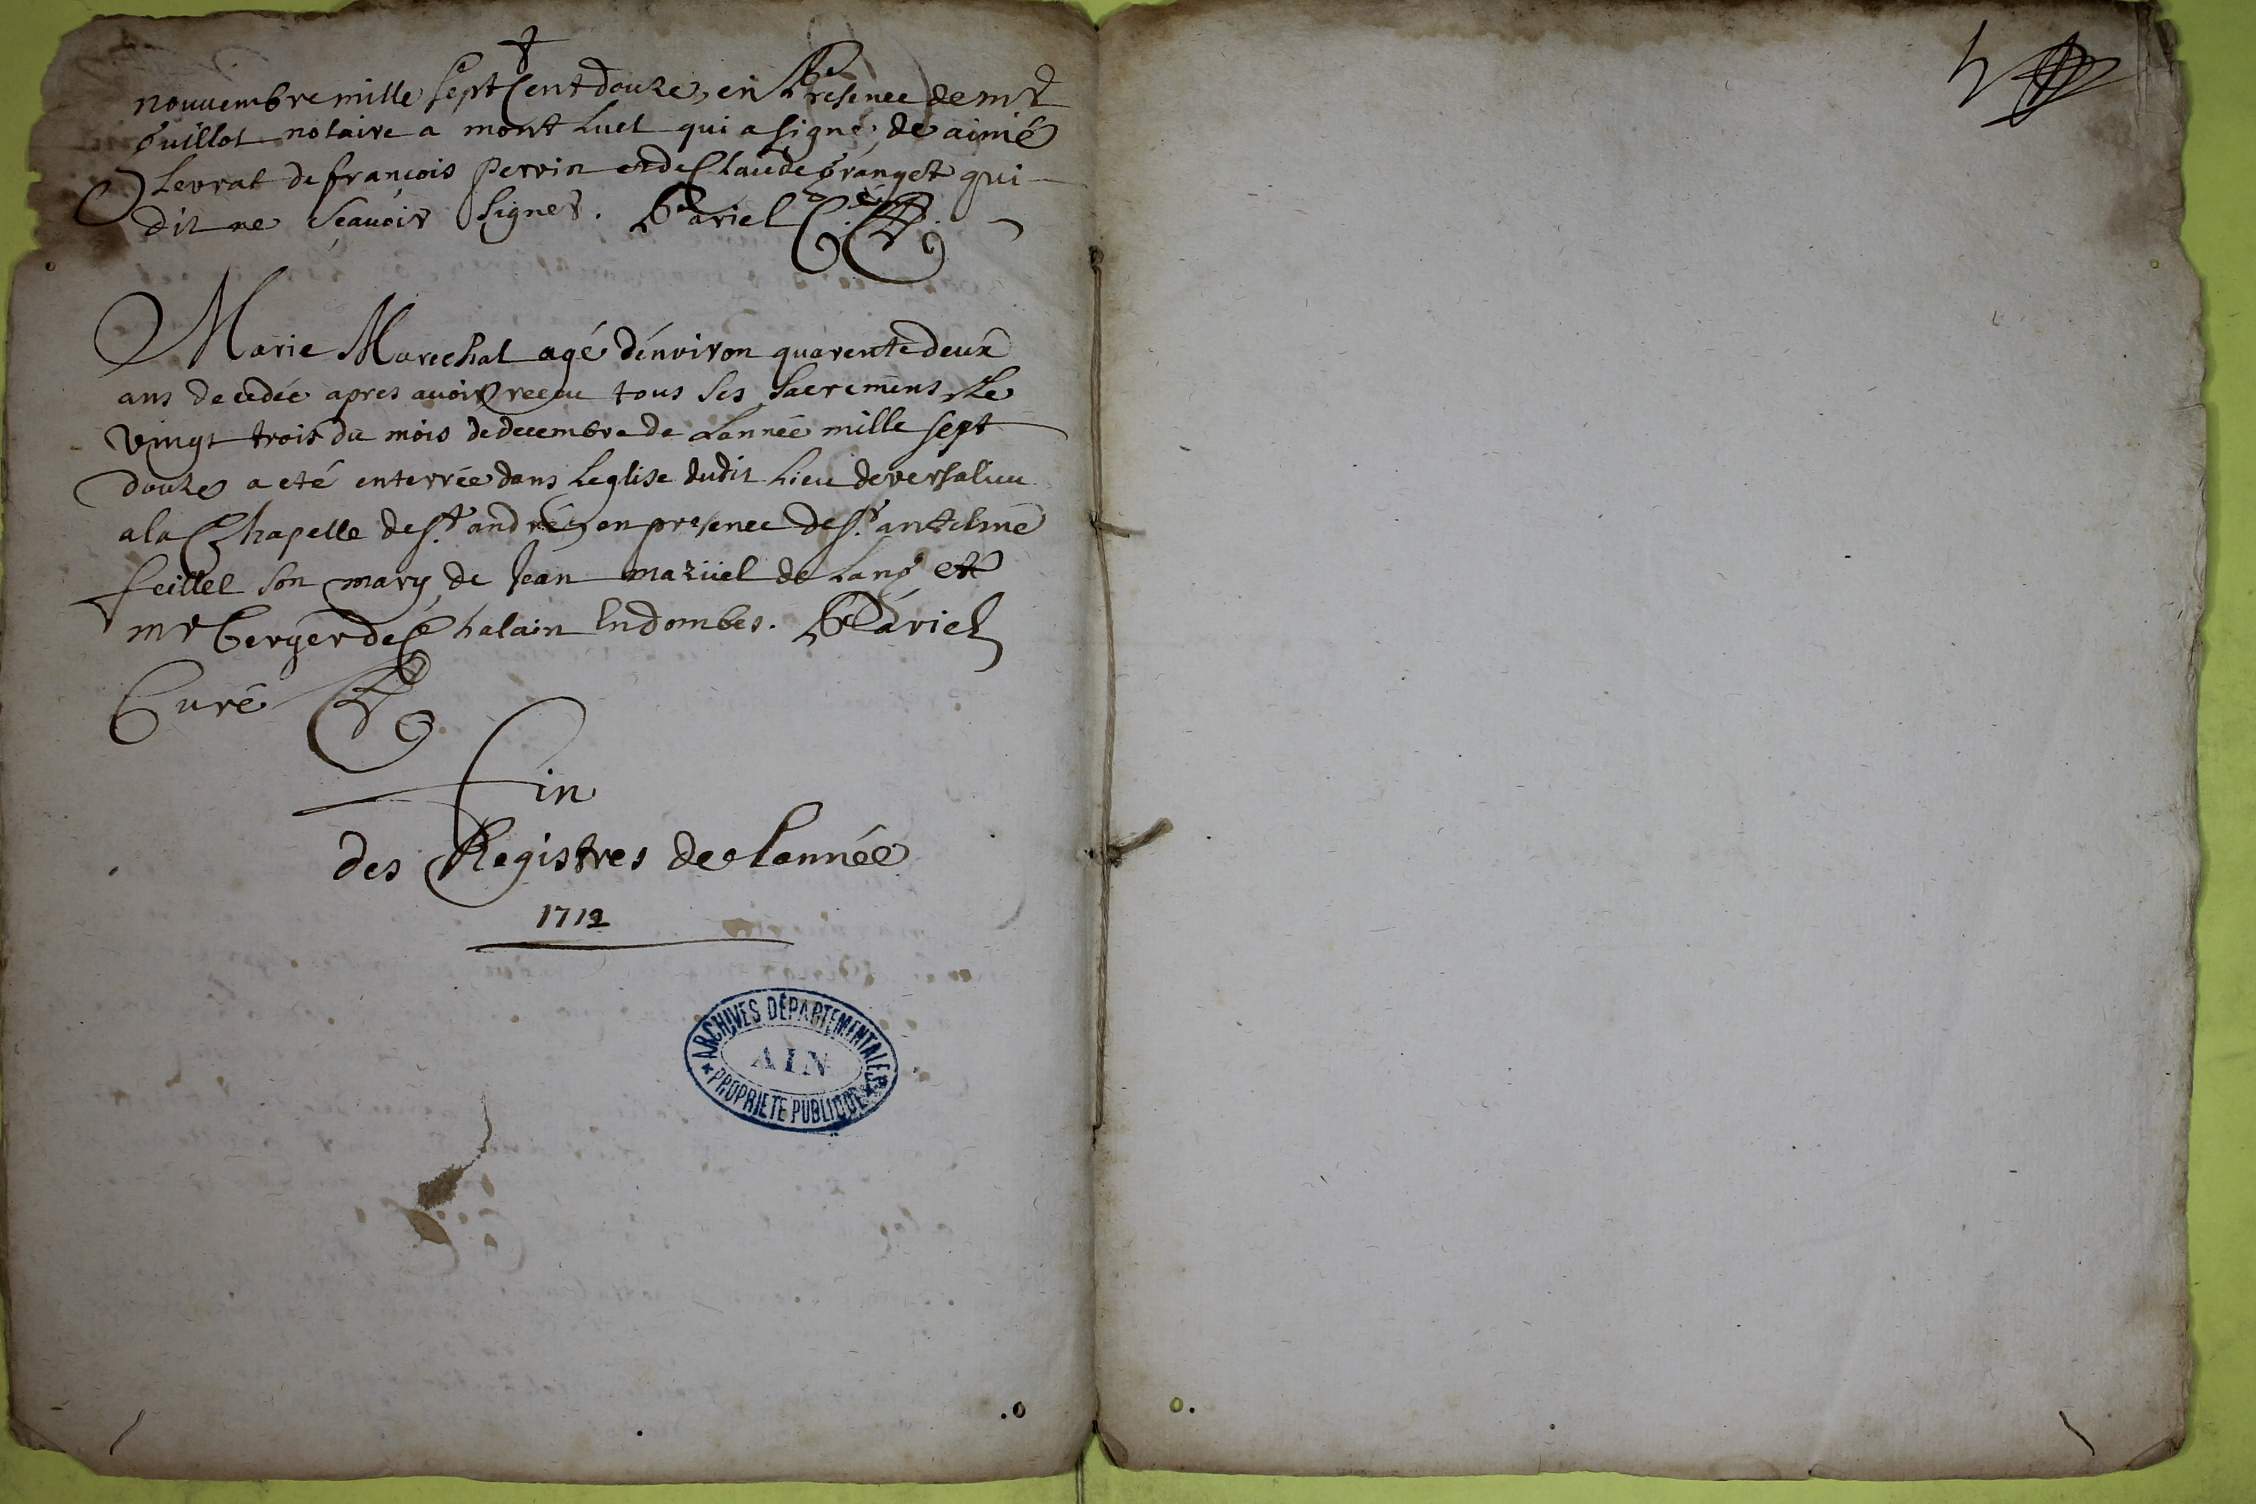 nouuembre mille sept Cent douze, en Presence de mr
guillot notaire a mont Luel qui a signé, de aimé
Levrat de françois Perrin et de Claude granget qui
dit ne sçauoir signer. Pariel C.é
Marie Marechal agé d'énviron quarente deux
ans decedée apres auoir receu tous ses sacremens Le
vingt trois du mois de decembre de Lanneé mille sept
douze a eté enterrée dans Leglise dudit Lieu de versalieu
a la Chapelle de st andré, en presence de sr. antelme
feillet son mary, de Jean mazüel de Lang et
mr Berger de Chalain En dombes. Pariel
Curé
Fin
des Registres de Lannéé
1712
ARCHIVES DÉPARTEMENTALES
AIN
PROPRIETE PUBLIQUE